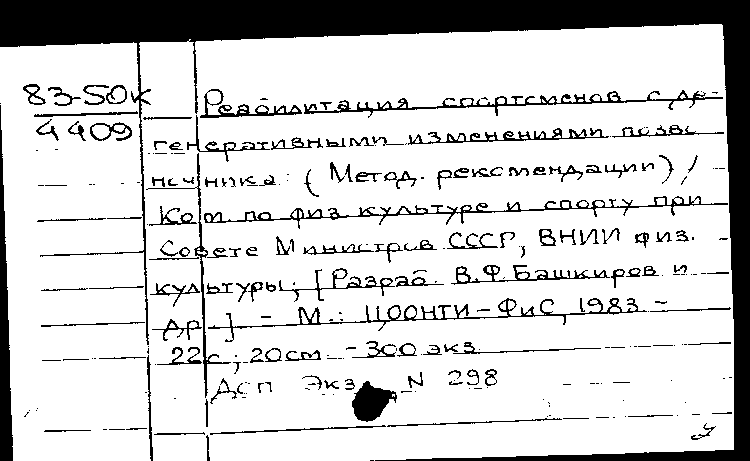 83-50к
4409
Реабилитация спортсменов с де-
генеративными изменениями позво
ночника: (Метод. рекомендации) /
Ком. по физ. культуре и спорту при
Совете Министров СССР, ВНИИ физ.
культуры; [Разраб. В.Ф. Башкиров и
др.] - М.: ЦООНТИ-ФиС, 1983 -
22с.; 20см. - 300 экз
Дсп Экз. N 298